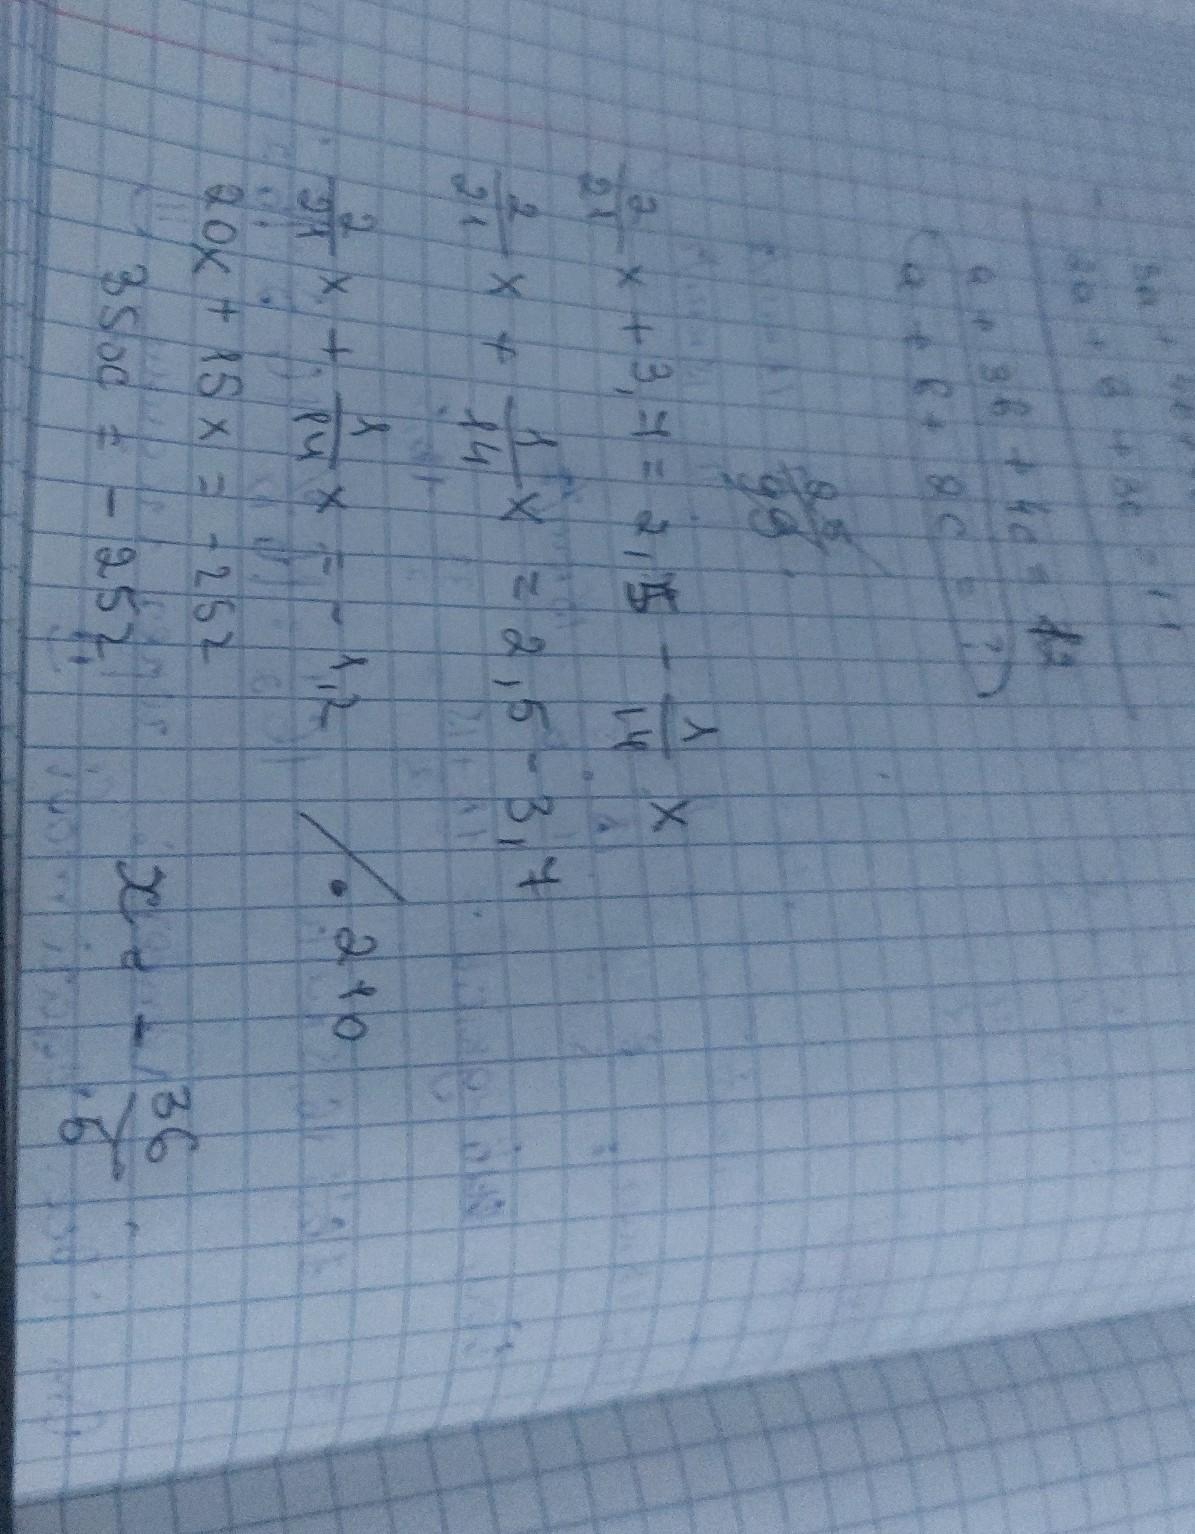 a + 3b + 4c = 12
(a + b + 8c = ?)
2/21 x + 3,7 = 2,5 - 1/14 x
2/21 x + 1/14 x = 2,5 - 3,7
2/21 x + 1/14 x = - 1,2 / · 210
20x + 15x = -252
35x = - 252 x = - 36/5